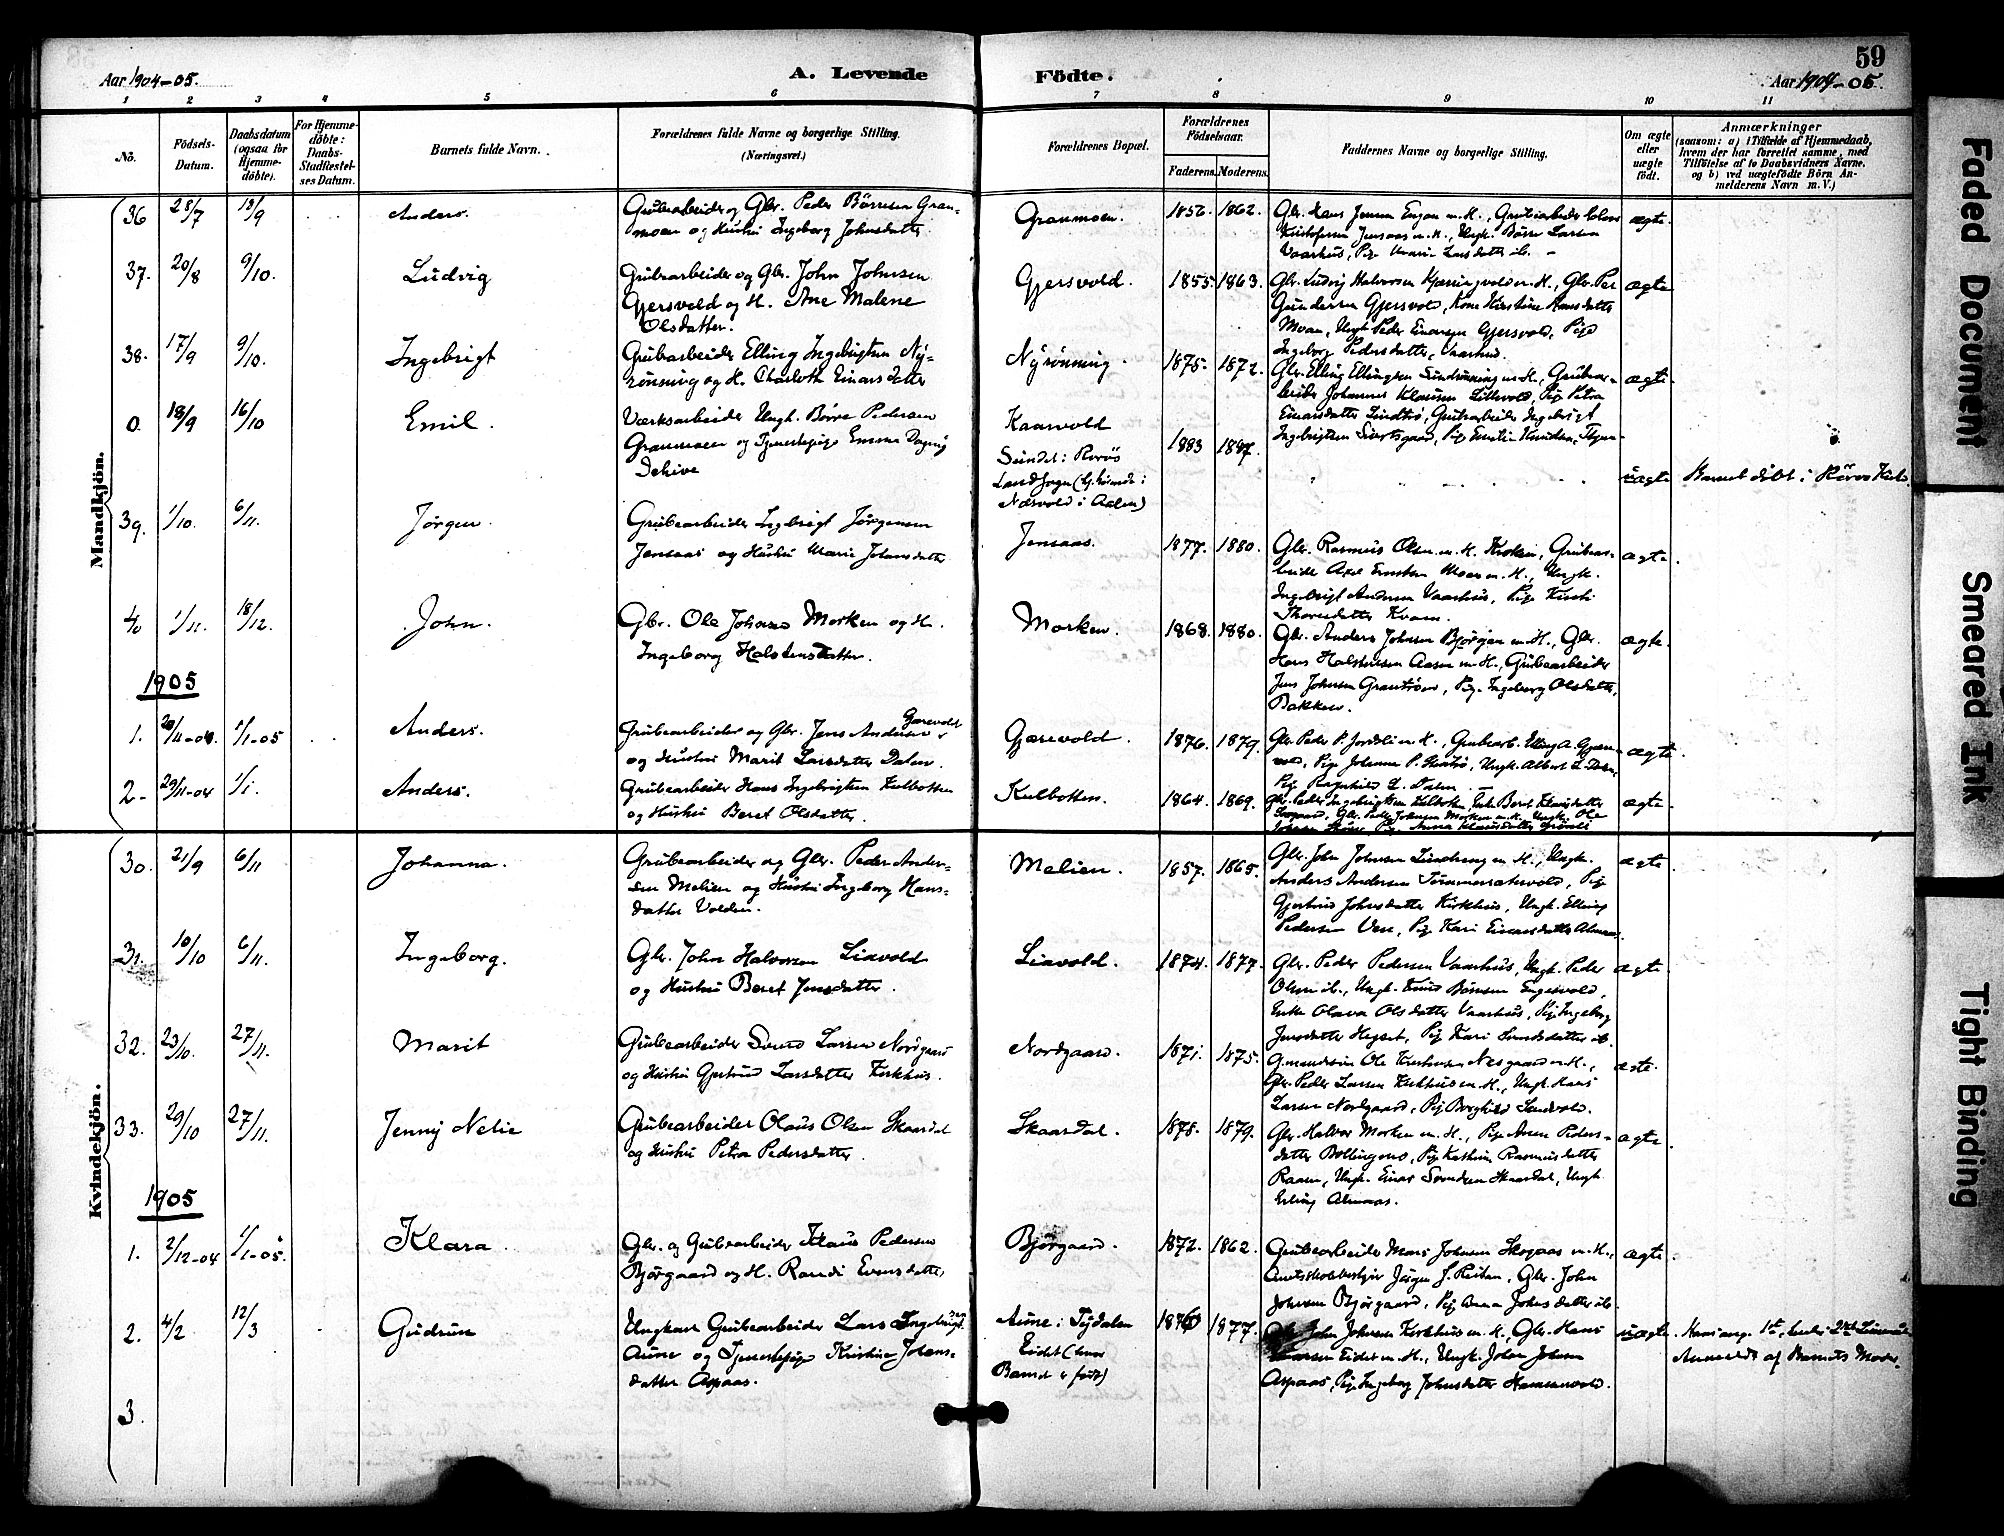 59
Aar 1904-05.
A. Levende
Födte.
Aar 1904-05.
1 2 3 4 5 6 7 8 9 10 11
No.
Födsels-Datum.
Daabsdatum (ogsaa for Hjemme-döbte).
For Hjemme-döbte: Daabs-Stadfæstel-ses Datum.
Barnets fulde Navn.
Forældrenes fulde Navne og borgerlige Stilling. (Næringsvei.)
Forældrenes Bopæl.
Forældrenes Födselsaar.
Faderens. Moderens.
Faddernes Navne og borgerlige Stilling.
Om ægte eller uægte födt.
Anmærkninger
(saasom: a) i Tilfælde af Hjemmedaab, hvem der har forrettet samme, med Tilföielse af to Daabsvidners Navne, og b) ved uægtefödte Börn An-melderens Navn m. V.)
Mandkjön.
36 28/7 18/9 Anders.
Grubearbeider og Gbr. Peder Börresen Gran-
moen og Hustru Ingeborg Johnsdatter.
Granmoen. 1852. 1862.
Gbr. Hans Jensen Engan m. H., Grubearbeider
Kristofersen Jensaas m. H., Ungk. Börre Larsen
Vaarhus, Pige Marie Larsdatter ib.
ægte.
37. 20/8 9/10. Ludvig
Grubearbeider og Gbr. John Johnsen
Gjersvold og H. Ane Malene
Olsdatter.
Gjersvold. 1855. 1863.
Gbr. Ludvig Halvorsen Kjæringvold m. H., Gbr. Per
Gundersen Gjersvold, Kone Kirstine Hansdatter
Moan, Ungk. Peder Einarsen Gjersvold, Pige
Ingeborg Pedersdatter, Vaarhus.
ægte
38. 17/9 9/10. Ingebrigt
Grubearbeider Elling Ingebrigtsen Ny-
rönning og H. Charloth Einarsdatter
Nyrönning. 1875. 1872.
Gbr. Elling Ellingsen Sundrönning m. H., Grubear-
beider Johannes Klausen Lillevold, Pige Petra
Einarsdatter Lindtrö, Grubearbeider Ingebrigt
Ingebrigtsen Sivertsgaard, Pige
ægte.
0. 18/9 16/10 Emil.
Værksarbeider Ungk. Börre Pedersen
Granmoen og Tjenestepige Emma Dagny
Kaasvold
Sundet i Rörös
Landsogn
Næsvold i Aalen)
1883 1887.
uægte
Barnet döbt i Röros Kirke
39. 1/10. 6/11. Jörgen.
Grubearbeider Ingebrigt Jörgensen
Jensaas og Hustru Marie Johansdatter
Jensaas. 1877. 1880.
Gbr. Rasmus Olsen m. H. Kroken, Grubear-
beider Axel Ernstsen Moen m. H., Ungk.
Ingebrigt Andersen Vaarhus, Pige Kirsti
Thoresdatter Kvam.
ægte.
40 1/11. 18/12. John.
Gbr. Ole Johnsen Morken og H.
Ingeborg Halstensdatter.
Morken. 1868. 1880.
Gbr. Anders Johnsen Bjørgan m. H., Gbr.
Hans Halstensen Aasen m. H., Grubearbeider
Jens Johnsen Grantröen, Pige Ingeborg Olsdatter,
Bakken.
ægte.
1905
1. 20/11-04. 1/1-05 Anders.
Grubearbeider og Gbr. Jens Andersen Gjærevold
og Hustru Marit Larsdatter Dalen.
Gjærevold. 1876. 1879.
Gbr. Peder P. Jordli m. H., Grubearb. Elling A. Gjære-
vold, Pige Johanna P. , Ungk. Albert L. Dalen,
Pige Ragnhild L. Dalen
ægte.
2. 29/11-04 1/1. Anders.
Grubearbeider Hans Ingebrigtsen Kulbotten
og Hustru Beret Olsdatter.
Kulbotten. 1864. 1869.
Gbr. Peder Ingebrigtsen Kulbotten, Enke Beret Klausdatter
Gbr. Peder Johnsen Morken m. H., Ungk. Ole
Pige Anna Klausdatter
ægte.
Kvindekjön.
30. 21/9 6/11 Johanna.
Grubearbeider og Gbr. Peder Ander-
sen Melien og Hustru Ingeborg Hans-
datter Volden.
Melien. 1857. 1865.
Gbr. John Johnsen Lundreng m. H., Ungk.
Anders Andersen Timmersætervold, Pige
Gjertrud Johnsdatter Kirkhus, Ungk. Elling
Pedersen , Pige Kari Einarsdatter Almaas.
ægte
31. 10/10 6/11. Ingeborg.
Gbr. John Halvorsen Liavold
og Hustru Beret Jensdatter.
Liavold. 1874. 1877.
Gbr. Peder Pedersen Vaarhus, Ungk. Peder
Olsen ib., Ungk. Knud Börresen Engesvold,
Enke Olava Olsdatter Vaarhus, Pige Ingeborg
Jensdatter Hegset, Pige Kari Svendsdatter ib.
ægte.
32. 23/10. 27/11. Marit
Grubearbeider Svend Larsen Nordgaard
og Hustru Gjertrud Larsdatter Kirkhus.
Nordgaard. 1871. 1875.
Gaardmand Ole Næsgaard m. H.,
Gbr. Peder Larsen Kirkhus m. H., Ungk. Hans
Larsen Nordgaard, Pige Borghild Sundvold.
ægte.
33. 29/10 27/11. Jenny Nelie
Grubearbeider Olaus Olsen Skaardal
og Hustru Petra Pedersdatter.
Skaardal. 1878. 1879.
Gbr. Halvor Morken m. H., Pige Anne Peders-
datter Bollingmo, Pige Kathrine Rasmusdatter
Raaen, Ungk. Einar Svendsen Skaardal, Ungk.
Erling Almaas.
ægte.
1905
1. 2/12-04 1/1-05. Klara
Gbr. og Grubearbeider Klaus Pedersen
Bjørgaard og H. Randi Evensdatter
Bjørgaard. 1872. 1862.
Grubearbeider Mons Johnsen Skogaas m. H.,
Amtsskolebestyrer Jørgen J. Reitan, Gbr. John
Johnsen Bjørgaard, Pige Anna Johnsdatter ib.
ægte
2. 4/2 12/3 Gudrun
Ungkarl Grubearbeider Lars Ingebrigtsen
Aune og Tjenestepige Kristine Johans-
datter Aspaas.
Aune i Tydalen
Eidet (hvor
Barnet er født)
1876 1877.
John Johnsen Kirkhus m. H., Gbr. Hans
Larsen Eidet m. H., Ungk. John Johnsen
Aspaas, Pige Ingeborg Johnsdatter Hammervold.
uægte.
Hans ang. 1ste, hendes 2det Leiermaal
Anmeldt af Barnets Moder.
3.
Faded Document
Smeared Ink
Tight Binding